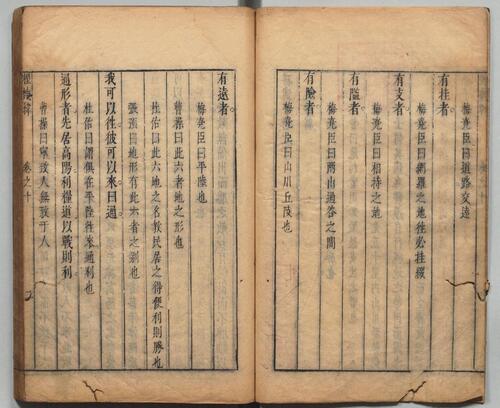 梅堯臣曰道路交達
有挂者
梅堯臣曰網羅之地往必挂綴
有支者
梅堯臣曰相持之地
有隘者
梅堯臣曰兩山通谷之間
有險者
梅堯臣曰山川丘陵也
有遠者
梅堯臣曰平陸也
曹操曰此六者地之形也
杜佑曰此六地之名教民居之得便利則勝也
張預曰地形有此六者之別也
我可以往彼可以來曰通
杜佑曰謂俱在平陸往來通利也
通形者先居高陽利糧道以戰則利
曹操曰寧致人無致于人
卷之十